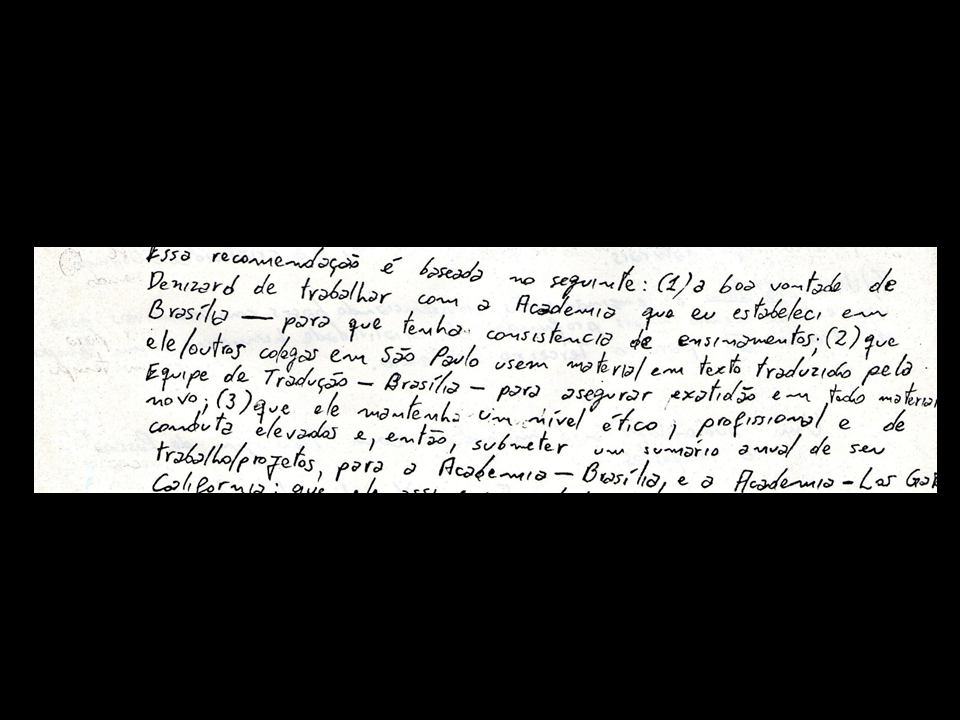 Essa recomendação é baseada no seguinte: (1) a boa vontade de
Denizard de trabalhar com a Academia que eu estabeleci em
Brasília — para que tenha consistencia de ensinamentos; (2) que
ele/outros colegas em São Paulo usem material em texto traduzido pela
Equipe de Tradução — Brasília — para asegurar exatidão em todo material
novo; (3) que ele mantenha um nível ético, profissional e de
conduta elevados e, então, submeter um sumário anual de seu
trabalho/projetos, para a Academia — Brasília, e a Academia — Los Gat
California; que ele